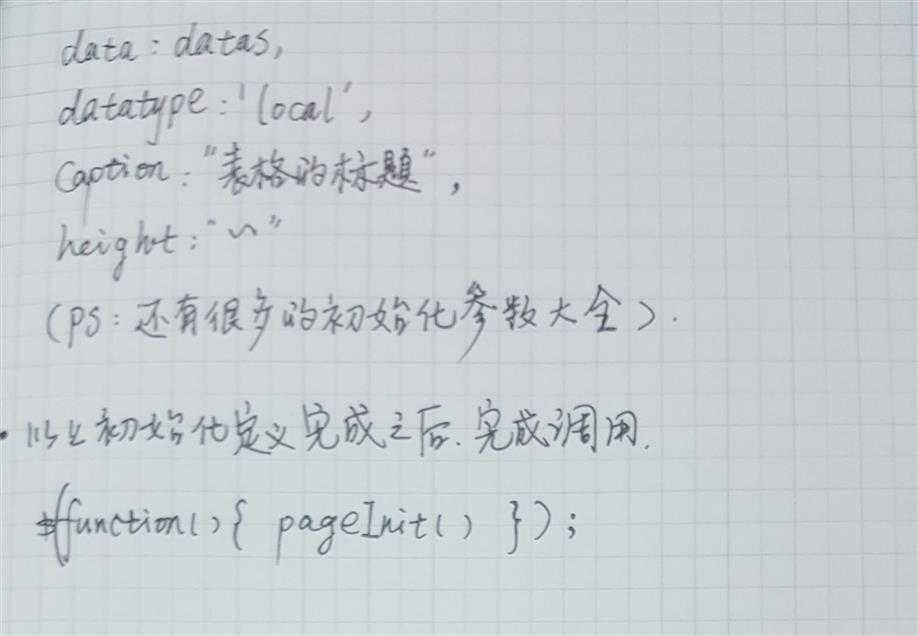 data: datas,
datatype: 'local',
Caption: "表格的标题",
height: "~"
(PS: 还有很多的初始化参数大全).
• 以上初始化定义完成之后.完成调用.
$(function(){ pageInit() });